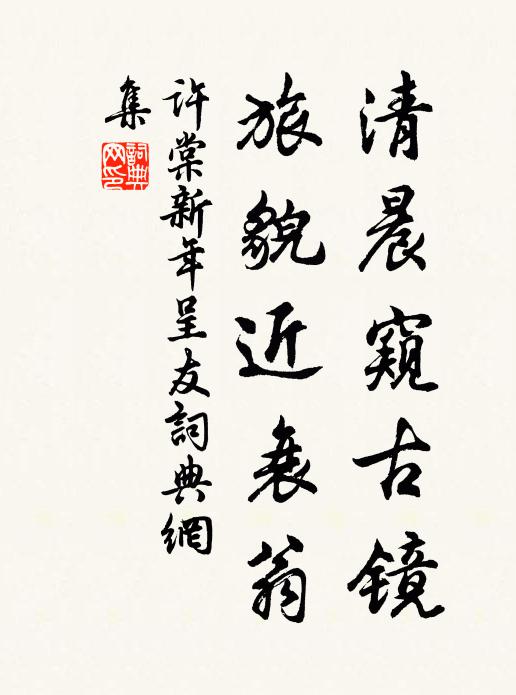 清晨窺古镜
旅貌近衰翁
許棠新年呈友詞典網
集
詞典
网印